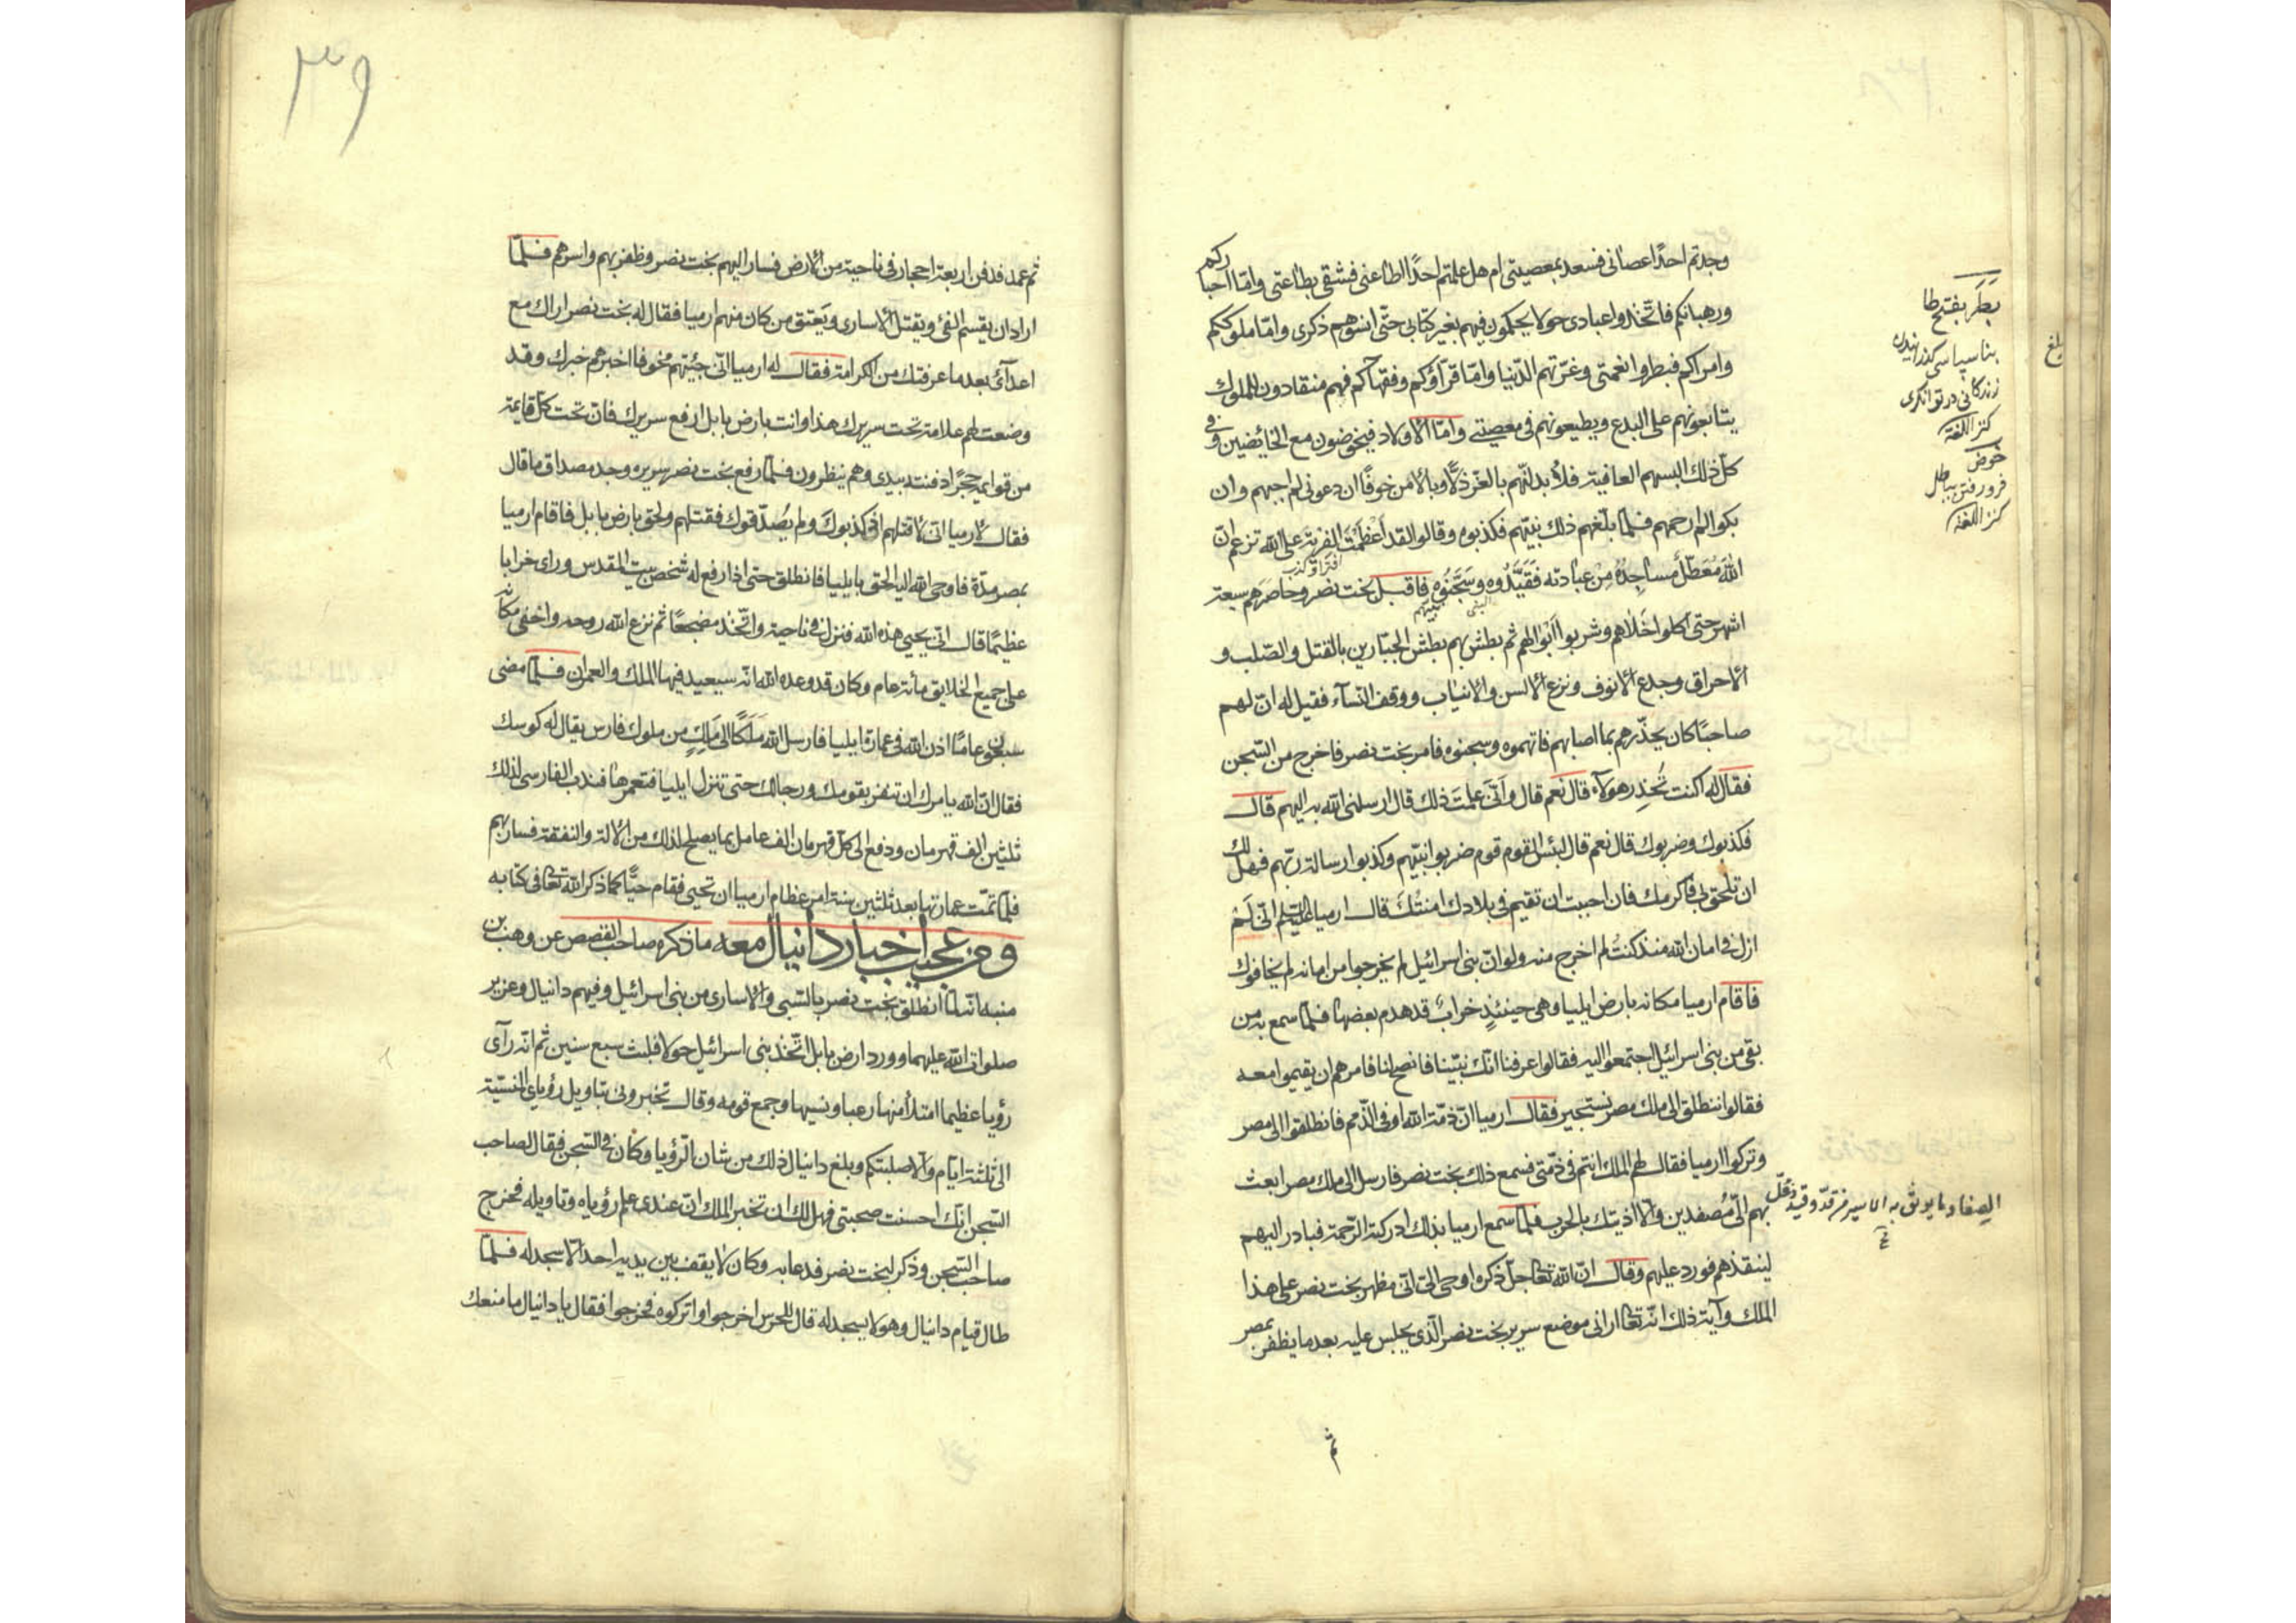 وجدتم احدًا عصانی فسعد بمعصیتی ام هل علمتم احدًا اطاعنی فشقی بطاعتی وامّا احبارکم
ورهبانکم فاتّخذوا عبادی خولا یحکمون فیهم بغیر کتابی حتّی انسوهم ذکری وامّا ملوککم
وامراکم فبطروا نعمتی وغرّتهم الدّنیا وامّا قرّاؤکم وفقهاکم فهم منقادون للملوک
یتابعونهم علی البدع ویطیعونهم فی معصیتی وامّا الاولاد فیخوضون مع الخائضین وفی
کلّ ذلك البسهم العافیة فلأبدلنّهم بالعزّ ذلًّا وبالامن خوفًا ان دعونی لم اجبهم وان
بکوا لم ارحمهم فلمّا بلّغهم ذلك نبیّهم فکذبوه وقالوا لقد اعظمت الفریة علی الله تزعم انّ
افتراء وکذب
الله مُعَطّلٌ مساجِدُهُ مِنْ عبادته فَقَیَّدُوه وسَجَّنُوهُ فاقبل بخت نصر وحاصرهم سبعة
اشهر حتی اکلوا اخلاهم وشربوا ابوالهم ثم بطش بهم بطش الجبّارین بالقتل والصّلب و
الاحراق وجدع الانوف ونزع الالسن والانیاب ووقف النّسآء فقیل له انّ لهم
صاحبًا کان یحذّرهم بما اصابهم فاتهموه وسجنوه فامر بخت نصر فاخرج من السّجن
فقال له اکنت تُحَذِر هولآء قال نعم قال وانّی علمتَ ذلك قال ارسلنی الله به الیهم قال
فکذبوك وضربوك قال نعم قال لبئس القوم قوم ضربوا نبیّهم وکذبوا رسالة ربّهم فهل لك
ان تلحق بی فاکرمك فان احببت ان تقیم فی بلادك امنتُكَ قال ارمیا علیه السلم انّی لَمْ
ازل فی امان الله منذ کنتُ لم اخرج منه ولو انّ بنی اسرائیل لم یخرجوا من امانه لم یخافوك
فاقام ارمیا مکانه بارض ایلیا وهی حینئذٍ خرابٌ قد هدم بعضها فلمّا سمع به من
بقی من بنی اسرائیل اجتمعوا الیه فقالوا عرفنا انّك نبیّنا فانصح لنا فامرهم ان یقیموا معه
فقالوا ننطلق الی ملك مصر نستجیر فقال ارمیا انّ ذمّة الله اوفی الذّمم فانطلقوا الی مصر
وترکوا ارمیا فقال لهم الملك انتم فی ذمّتی فسمع ذلك بخت نصر فارسل الی ملك مصر ابعث
بهم الیّ مُصفدین والّا اذیتك بالحرب فلمّا سمع ارمیا بذلك ادرکته الرّحمة فبادر الیهم
لینقذهم فورد علیهم وقال انّ الله تعالی جلّ ذکره اوحی الیّ انّی مظهر بخت نصر علی هذا
الملك وآیة ذلك انّه تعالی ارانی موضع سریر بخت نصر الّذی یجلس علیه بعد ما یظفر بمصر
ثم
بَطَر بفتح طا
بنا سپاسی گذرانیدن
زندگانی در توانگری
کنز اللغة
خوض
فرو رفتن بباطل
کنز اللغة
بلغ
الصفاد ما یوثق به الاسیر من قدّ وقید وغلّ
٣٩
ثم عمد فدفن اربعة احجار فی ناحیة من الارض فسار الیهم بخت نصر وظفر بهم واسرهم فلمّا
اراد ان یقسم الفیٔ ویقتل الاساری ویَعتق من کان منهم ارمیا فقال له بخت نصر اراك مع
اعدآئ بعد ما عرفتك من الکرامة فقال له ارمیا انّی جئیتهم مخوفا اخبرهم خبرك وقد
وضعت لهم علامة تحت سریرك هذا وانت بارض بابل ارفع سریرك فانّ تحت کلّ قایمة
من قوایمه حجرًا دفنته بیدی وهم ینظرون فلمّا رفع بخت نصر سریره وجد مصداق ما قال
فقال لارمیا انّی لاقتلهم اذ کذبوكَ ولم یُصدّقوك فقتلهم ولحق بارض بابل فاقام ارمیا
بمصر مدّة فاوحی الله الیه الحق بایلیا فانطلق حتی اذا رفع له شخص بیت المقدس ورای خرابا
عظیمًا قال انّی یحیی هذه الله فنزل فی ناحیة واتّخذ مضجعًا ثم نزع الله روحه واخفی مکانه
علی جمیع الخلایق مأئة عام وکان قد وعده الله انّه سیعید فیها الملك والعمران فلمّا مضی
سبعون عامًا اذن الله فی عمارة ایلیا فارسل الله مَلَکًا الی مَلِكٍ من ملوك فارس یقال له کوسك
فقال انّ الله یامرك ان تنفر بقومك ورجالك حتی تنزل ایلیا فتعمرها فندب الفارسی لذلك
ثلثین الف قهرمان ودفع الی کلّ قهرمان الف عامل بما یصلح لذلك من الالة والنفقة فسار بهم
فلمّا تمّت عمارتها بعد ثلثین سنة امر عظام ارمیا ان تحیی فقام حیًّا کما ذکر الله تعالی فی کتابه
ومن عجیب اخبار دانیال معه ما ذکره صاحب القصص عن وهب بن
منبه انّه لمّا انطلق بخت نصر بالسّبی والاساری من بنی اسرائیل وفیهم دانیال وعزیر
صلوات الله علیهما وورد ارض بابل اتّخذ بنی اسرائیل خولا فلبث سبع سنین ثم انّه رآی
رؤیا عظیما امتلأ منها رعبا ونسیها وجمع قومه وقال تخبرونی بتاویل رؤیای المنسیّة
الی ثلثة ایّام والّا صلبتکم وبلغ دانیال ذلك من شان الرّؤیا وکان فی السّجن فقال لصاحب
السّجن انّك احسنت صحبتی فهل لك ان تخبر الملك انّ عندی علم رؤیاه وتاویله فخرج
صاحب السّجن وذکر لبخت نصر فدعا به وکان لا یقف بین یدیه احد الّا سجد له فلمّا
طال قیام دانیال وهو لا یسجد له قال للحرس اخرجوا واترکوه فخرجوا فقال یا دانیال ما منعك